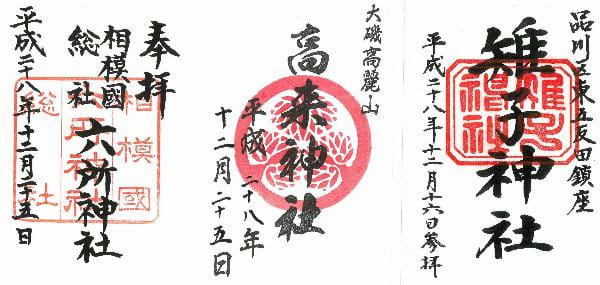 品川区東五反田鎮座
雉子神社
平成二十八年十二月十六日参拝
大磯高麗山
高来神社
平成二十八年
十二月二十五日
奉拝
相模國
総社
六所神社
平成二十八年十二月二十五日
相模國
総社